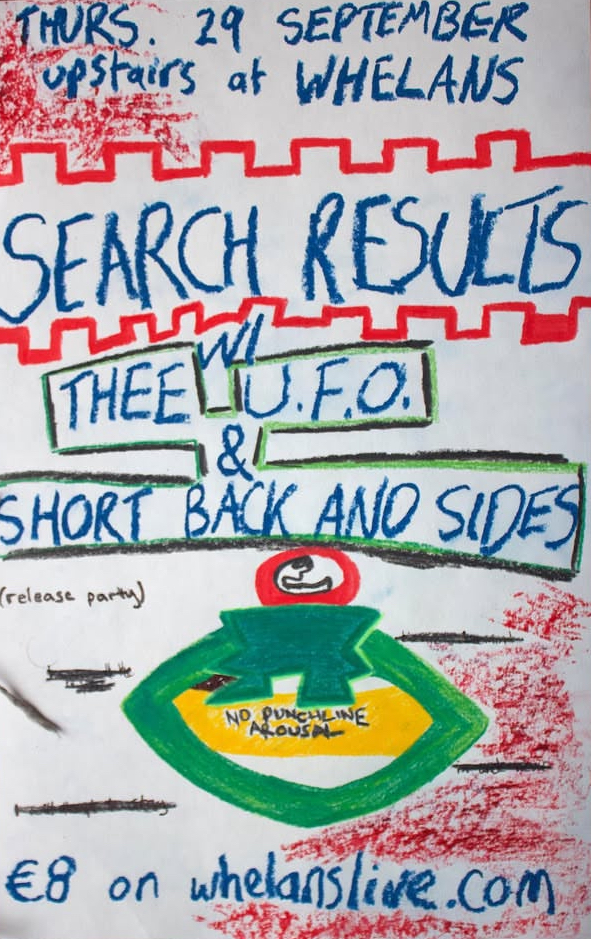 THURS. 29 SEPTEMBER
upstairs at WHELANS
SEARCH RESULTS
W/
THEE U.F.O.
&
SHORT BACK AND SIDES
(release party)
NO PUNCHLINE
AROUSAL
€8 on whelanslive.com